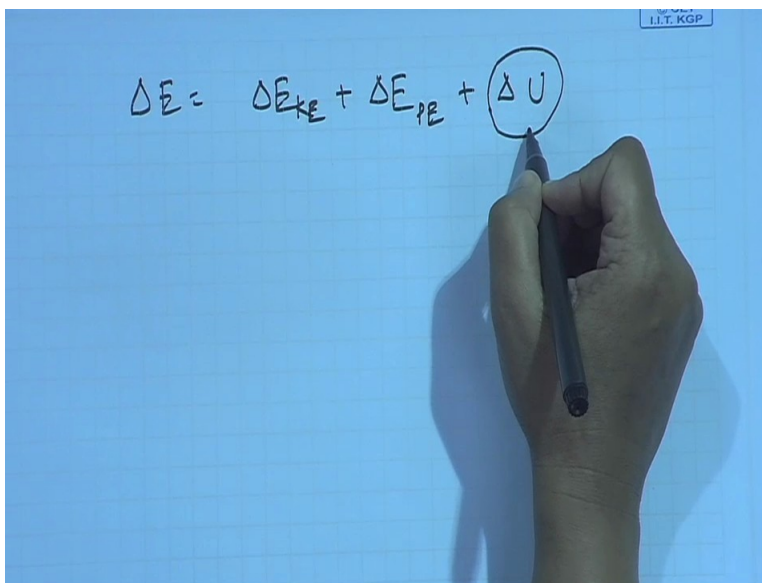 I.I.T. KGP
ΔE = ΔE_KE + ΔE_PE + ΔU